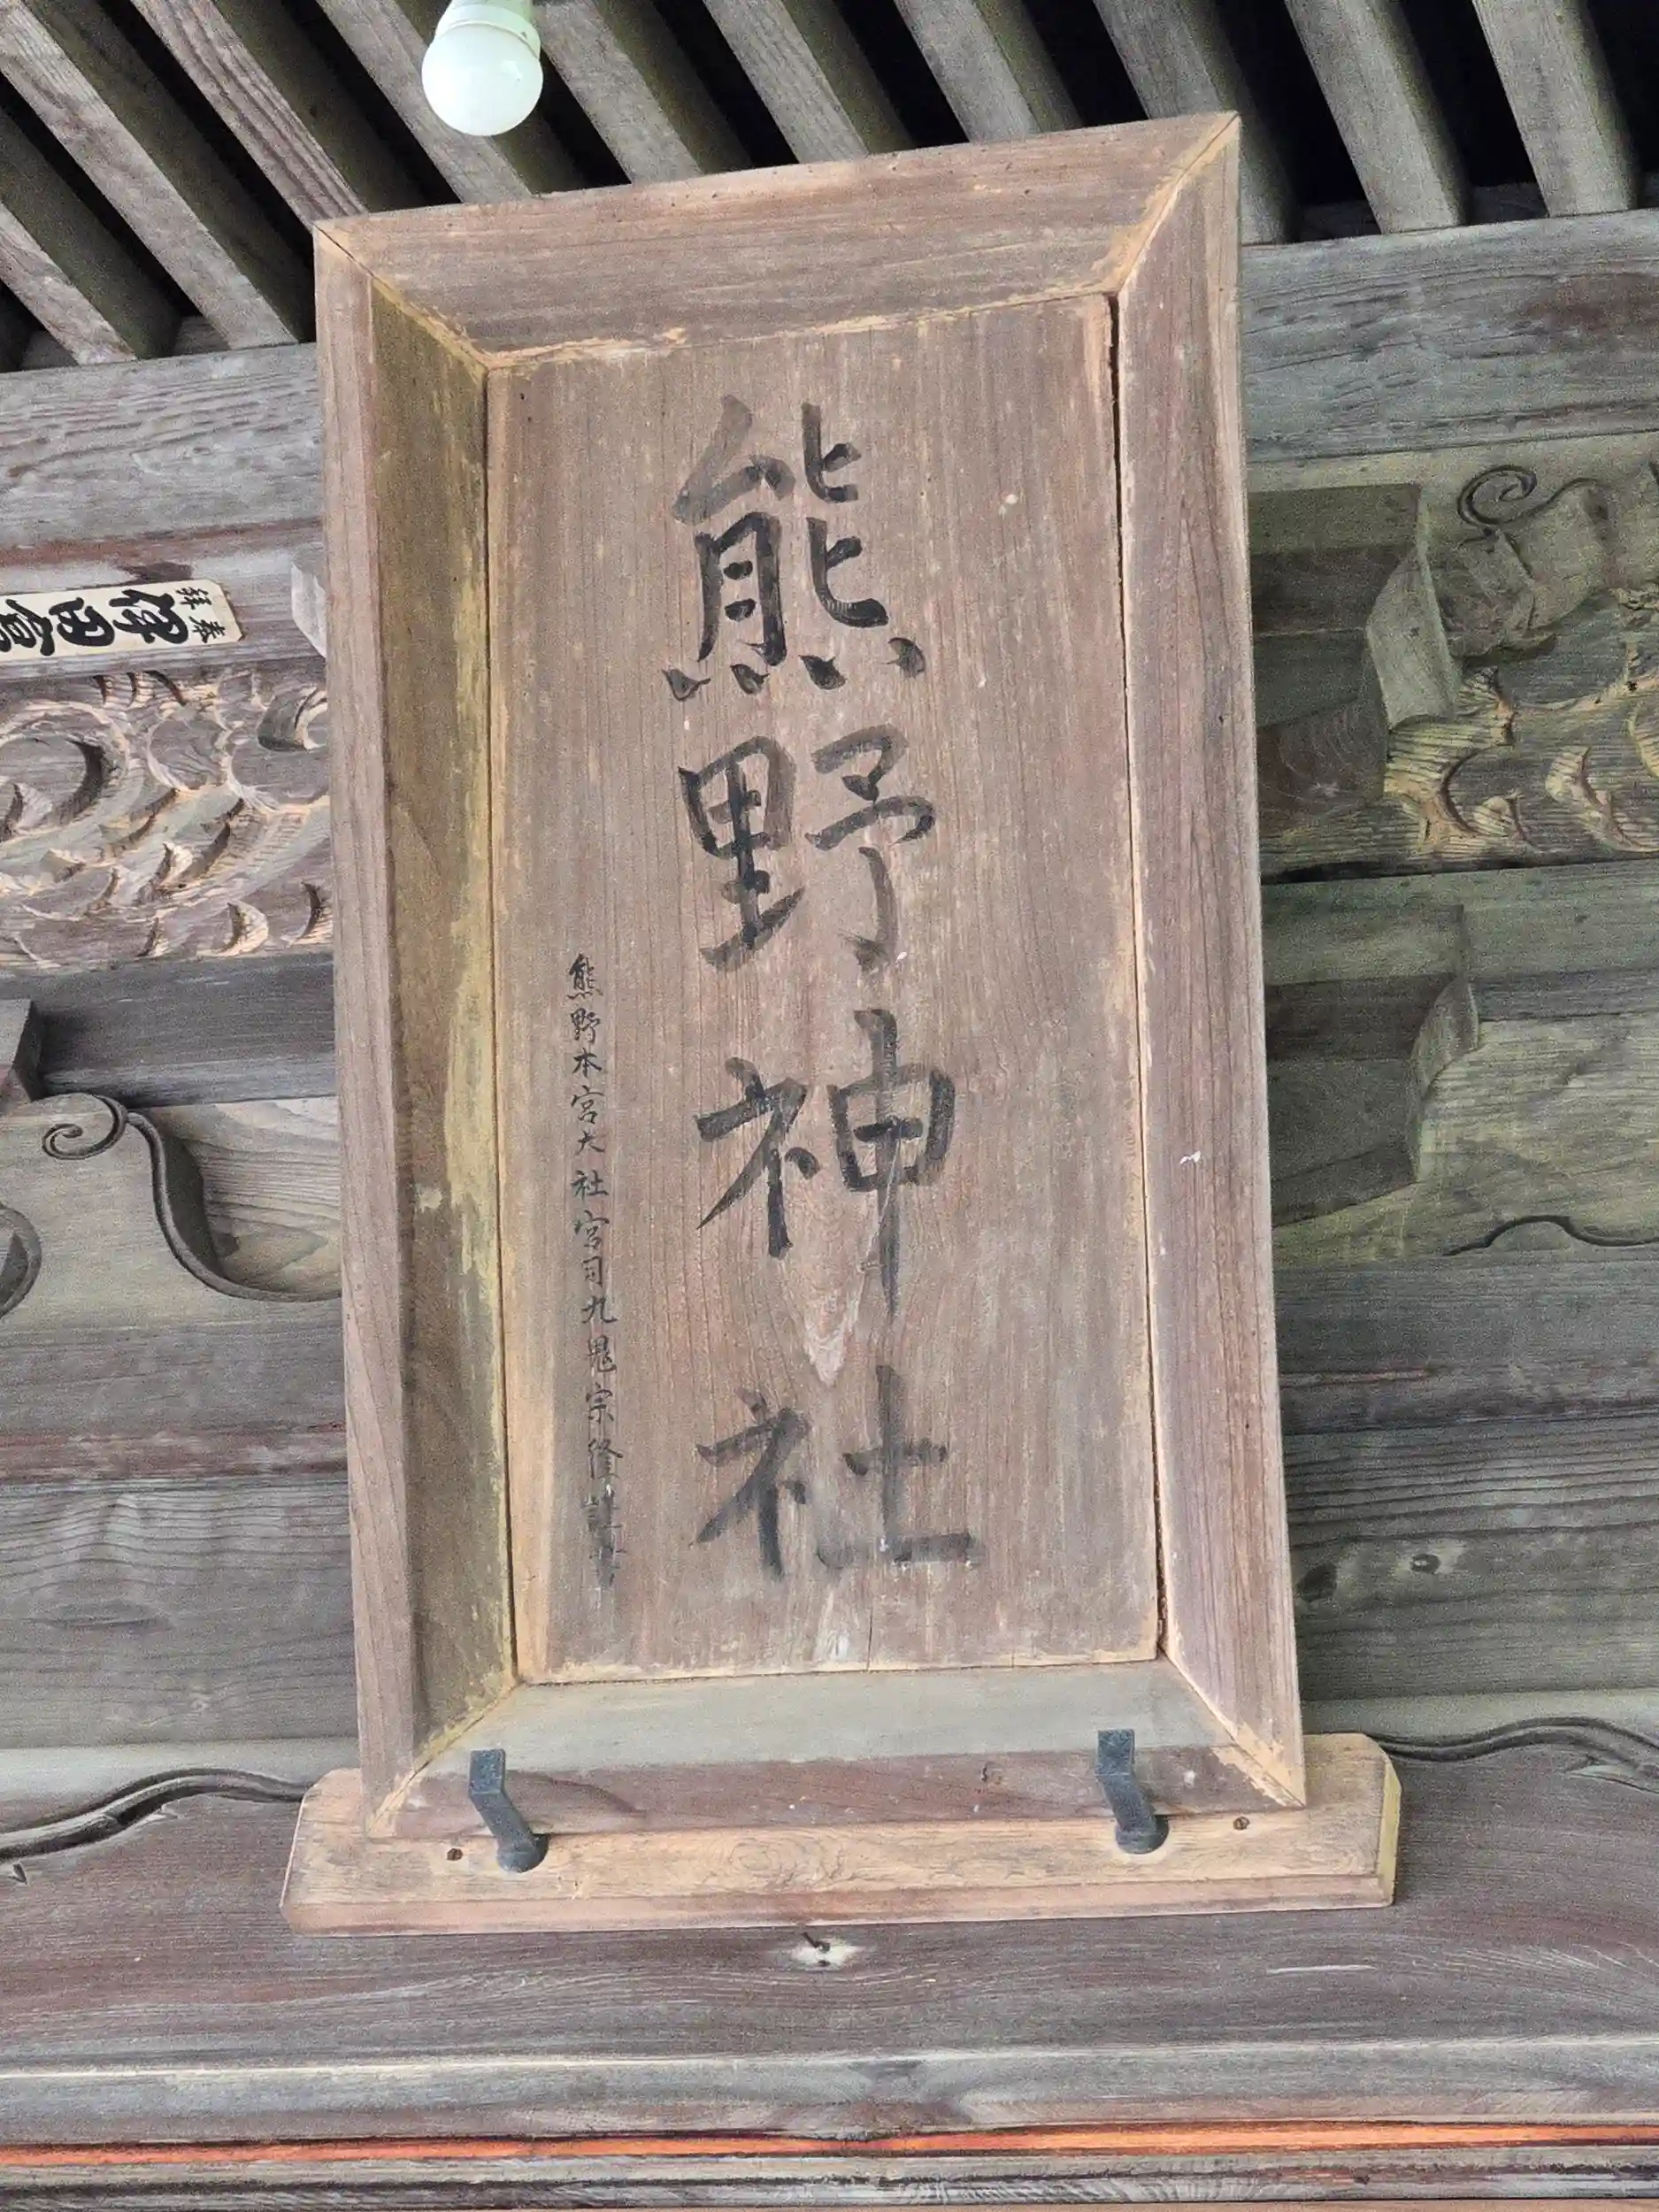 熊野神社
熊野本宮大社宮司九鬼宗隆謹書
奉拝
澤田會